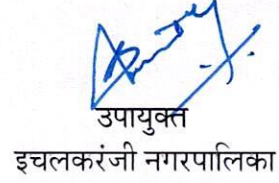 उपायुक्त
इचलकरंजी नगरपालिका